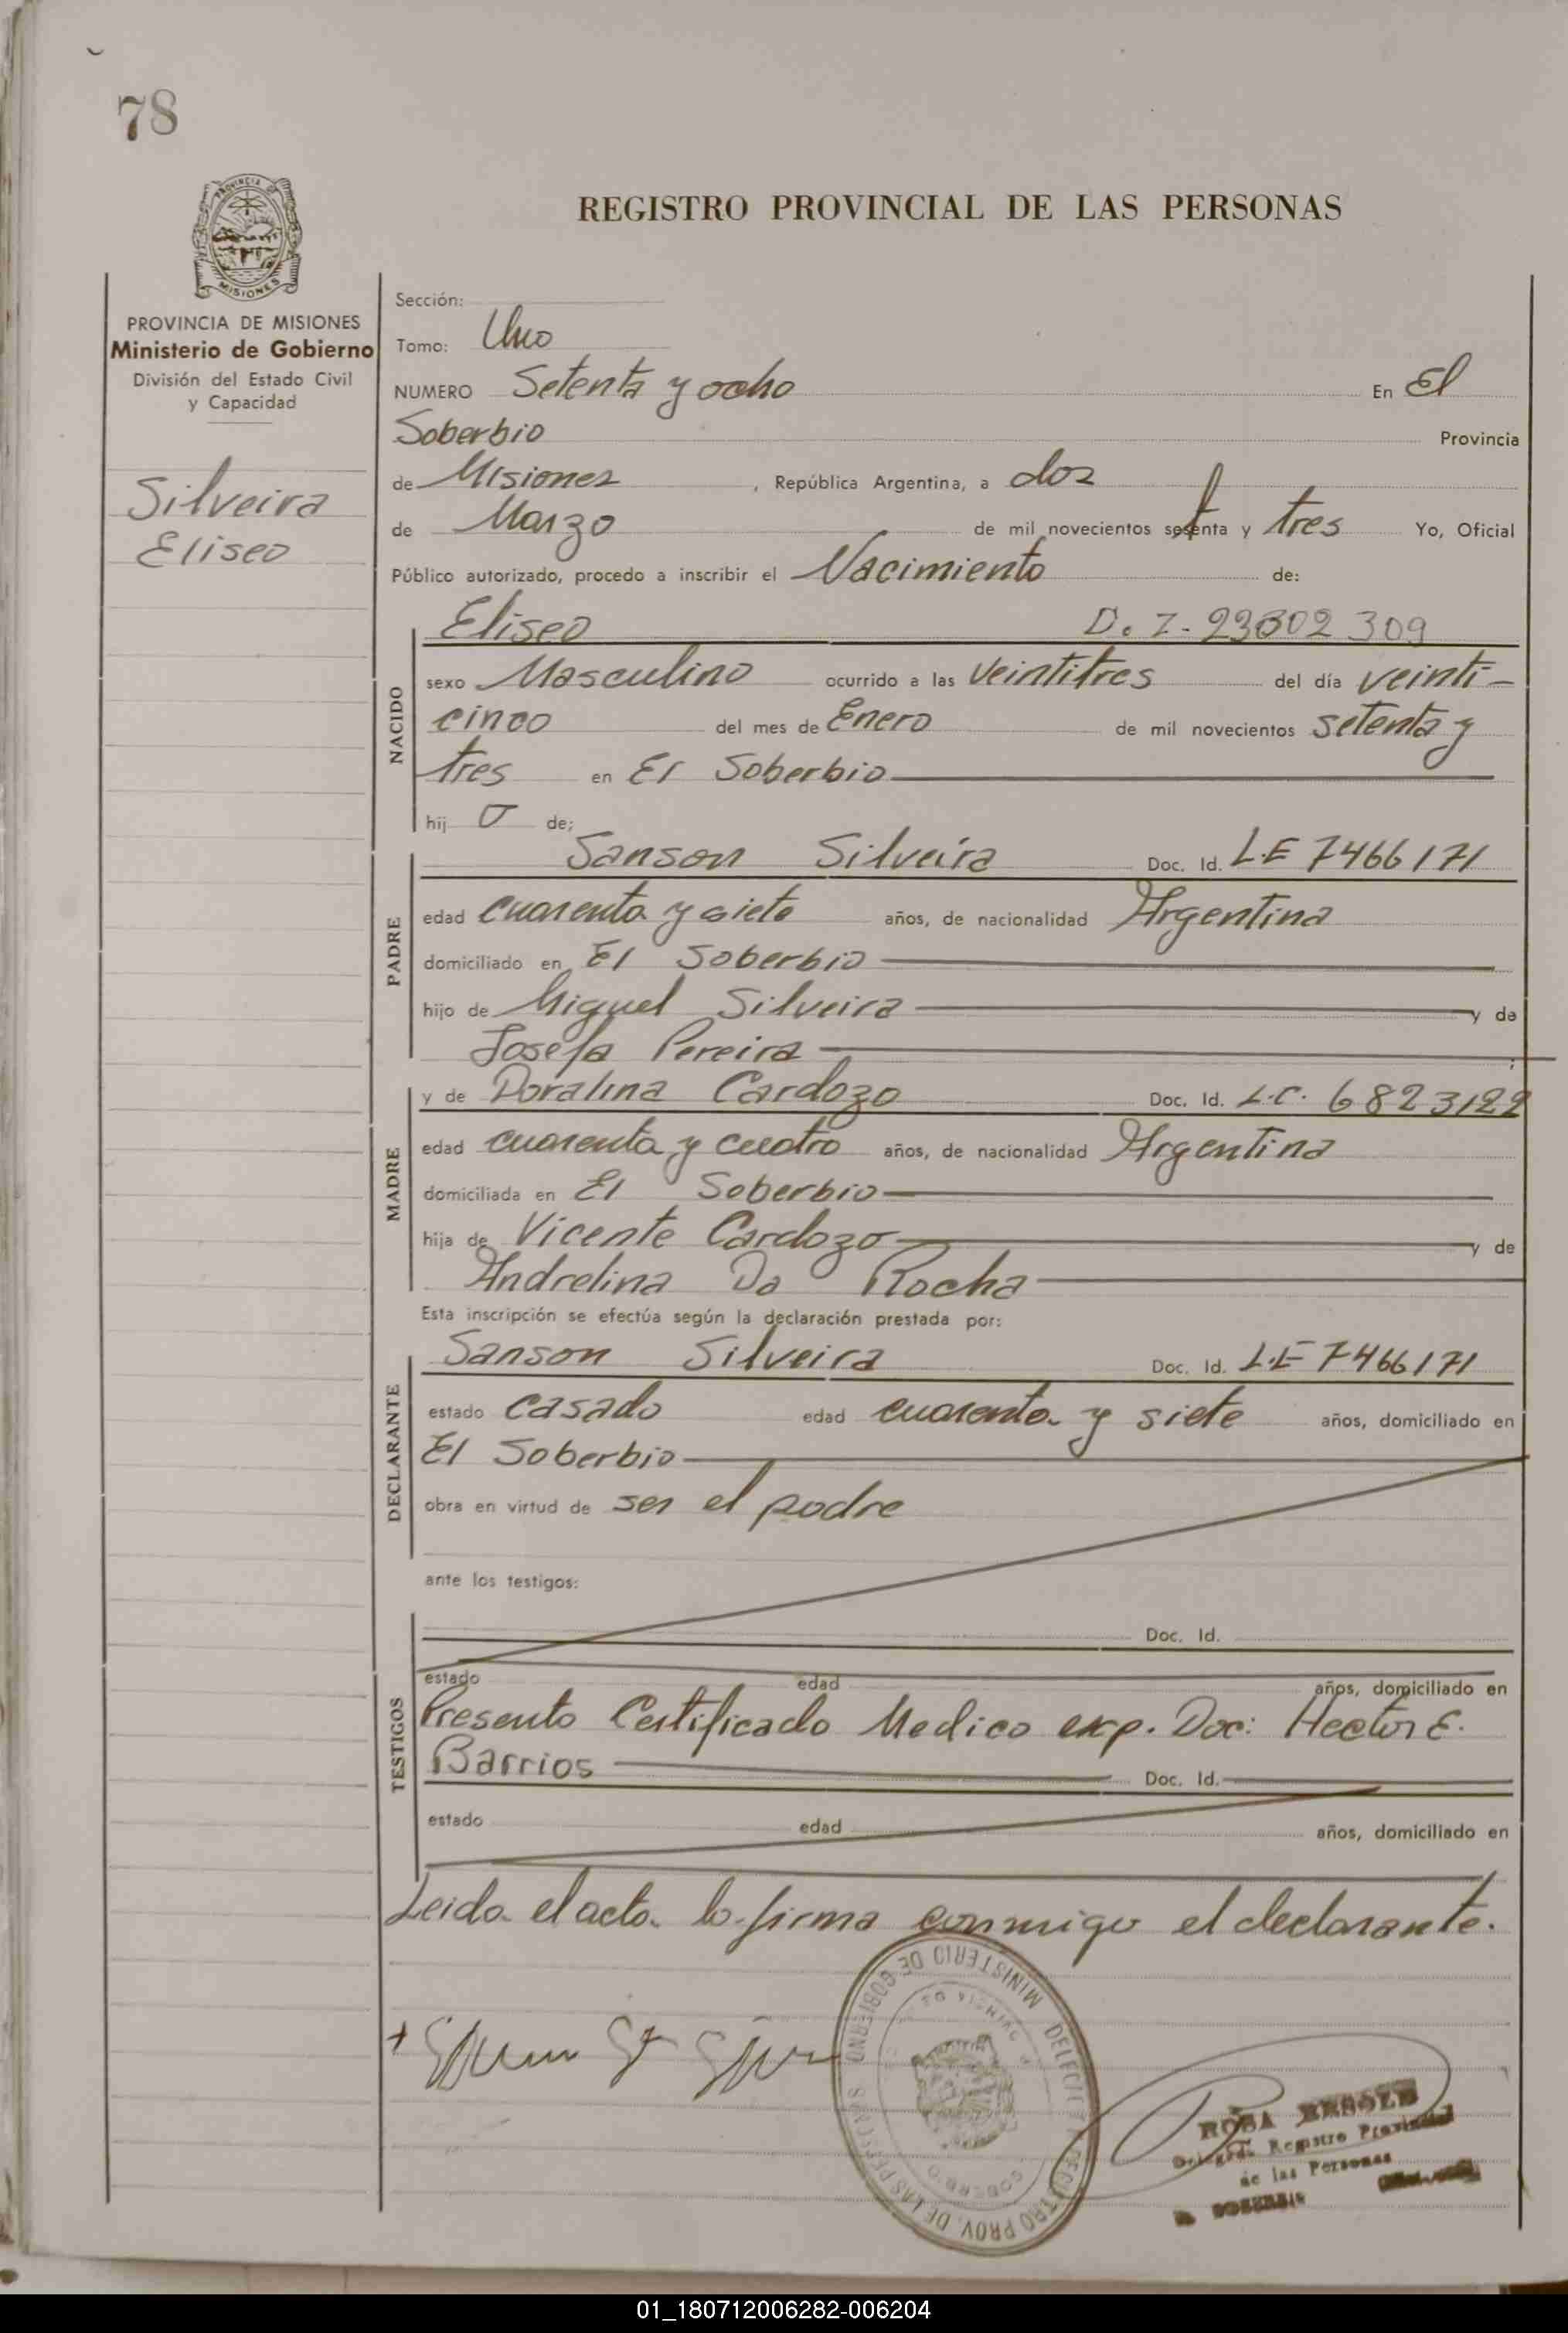 78
PROVINCIA DE
MISIONES
REGISTRO PROVINCIAL DE LAS PERSONAS
PROVINCIA DE MISIONES
Ministerio de Gobierno
División del Estado Civil
y Capacidad
Silveira
Eliseo
Sección:
Tomo: Uno
NUMERO Setenta y ocho En El
Soberbio Provincia
de Misiones , República Argentina, a dos
de Marzo de mil novecientos setenta y tres Yo, Oficial
Público autorizado, procedo a inscribir el Nacimiento de:
Eliseo D. I. 23302 309
NACIDO
sexo Masculino ocurrido a las veintitres del día veinti-
cinco del mes de Enero de mil novecientos setenta y
tres en El Soberbio
hij o de;
PADRE
Sanson Silveira Doc. Id. L.E 7466171
edad cuarenta y siete años, de nacionalidad Argentina
domiciliado en El Soberbio
hijo de Miguel Silveira y de
Josefa Pereira ;
MADRE
y de Doralina Cardozo Doc. Id. L.C. 6823122
edad cuarenta y cuatro años, de nacionalidad Argentina
domiciliada en El Soberbio
hija de Vicente Cardozo y de
Andrelina Da Rocha
Esta inscripción se efectúa según la declaración prestada por:
DECLARANTE
Sanson Silveira Doc. Id. L.E 7466171
estado casado edad cuarenta y siete años, domiciliado en
El Soberbio
obra en virtud de ser el padre
ante los testigos:
TESTIGOS
Doc. Id.
estado edad años, domiciliado en
Presento Certificado Medico exp. Doc: Hector E.
Barrios Doc. Id.
estado edad años, domiciliado en
Leida el acta la firma conmigo el declarante.
MINISTERIO DE GOBIERNO
REGISTRO PROV. DE LAS PERSONAS
ROSA
Registro Provincial
de las Personas
SOBERBIO
01_180712006282-006204